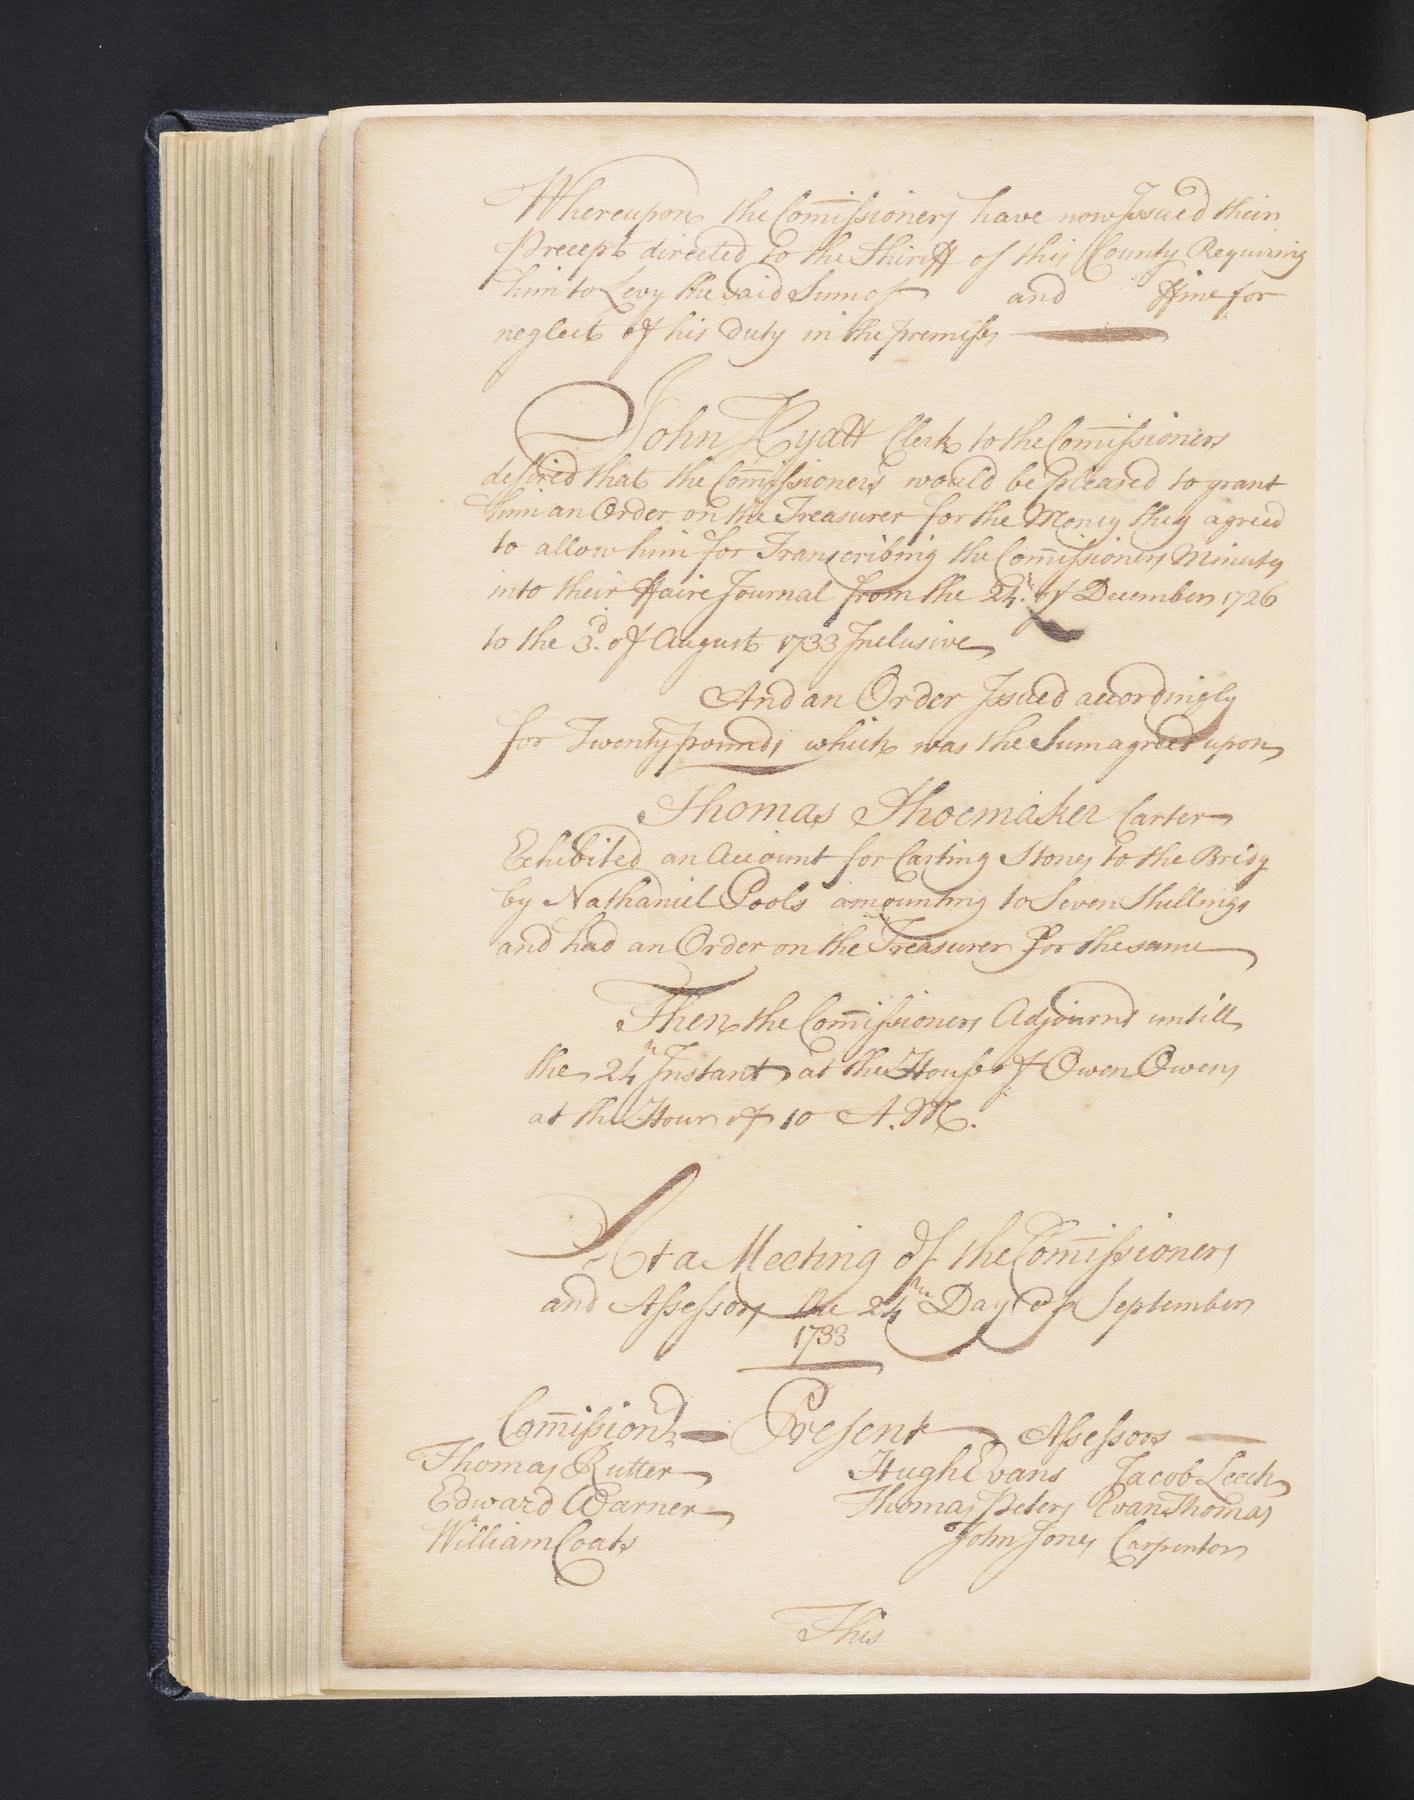 Whereupon the Com̄issioners have now Issued their
Precept directed to the Shiriff of this County Requiring
him to Levy the said Sum of and ffine for
neglect of his Duty in the premises
John Hyatt Clerk to the Com̄issioners
desired that the Com̄issioners would be pleased to grant
him an Order on the Treasurer for the Money they agreed
to allow him for Transcribing the Com̄issioners Minutes
into their ffaire Journal from the 24th of December 1726
to the 3d. of August 1733 Inclusive
And an Order Issued accordingly
for Twenty pounds which was the Sum agreed upon
Thomas Shoemaker Carter
Exhibited an Account for Carting Stones to the Bridg
by Nathaniel Pools amounting to Seven Shillings
and had an Order on the Treasurer for the same
Then the Com̄issioners Adjournd untill
the 24th Instant at the House of Owen Owens
at the Hour of 10 A. M.
At a Meeting of the Com̄issioners
and Assessors the 24th Day of September
1733
Com̄issionrs Present Assessors
Thomas Rutter Hugh Evans Jacob Leech
Edward Warner Thomas Peters Evan Thomas
William Coats John Jones Carpenter
This